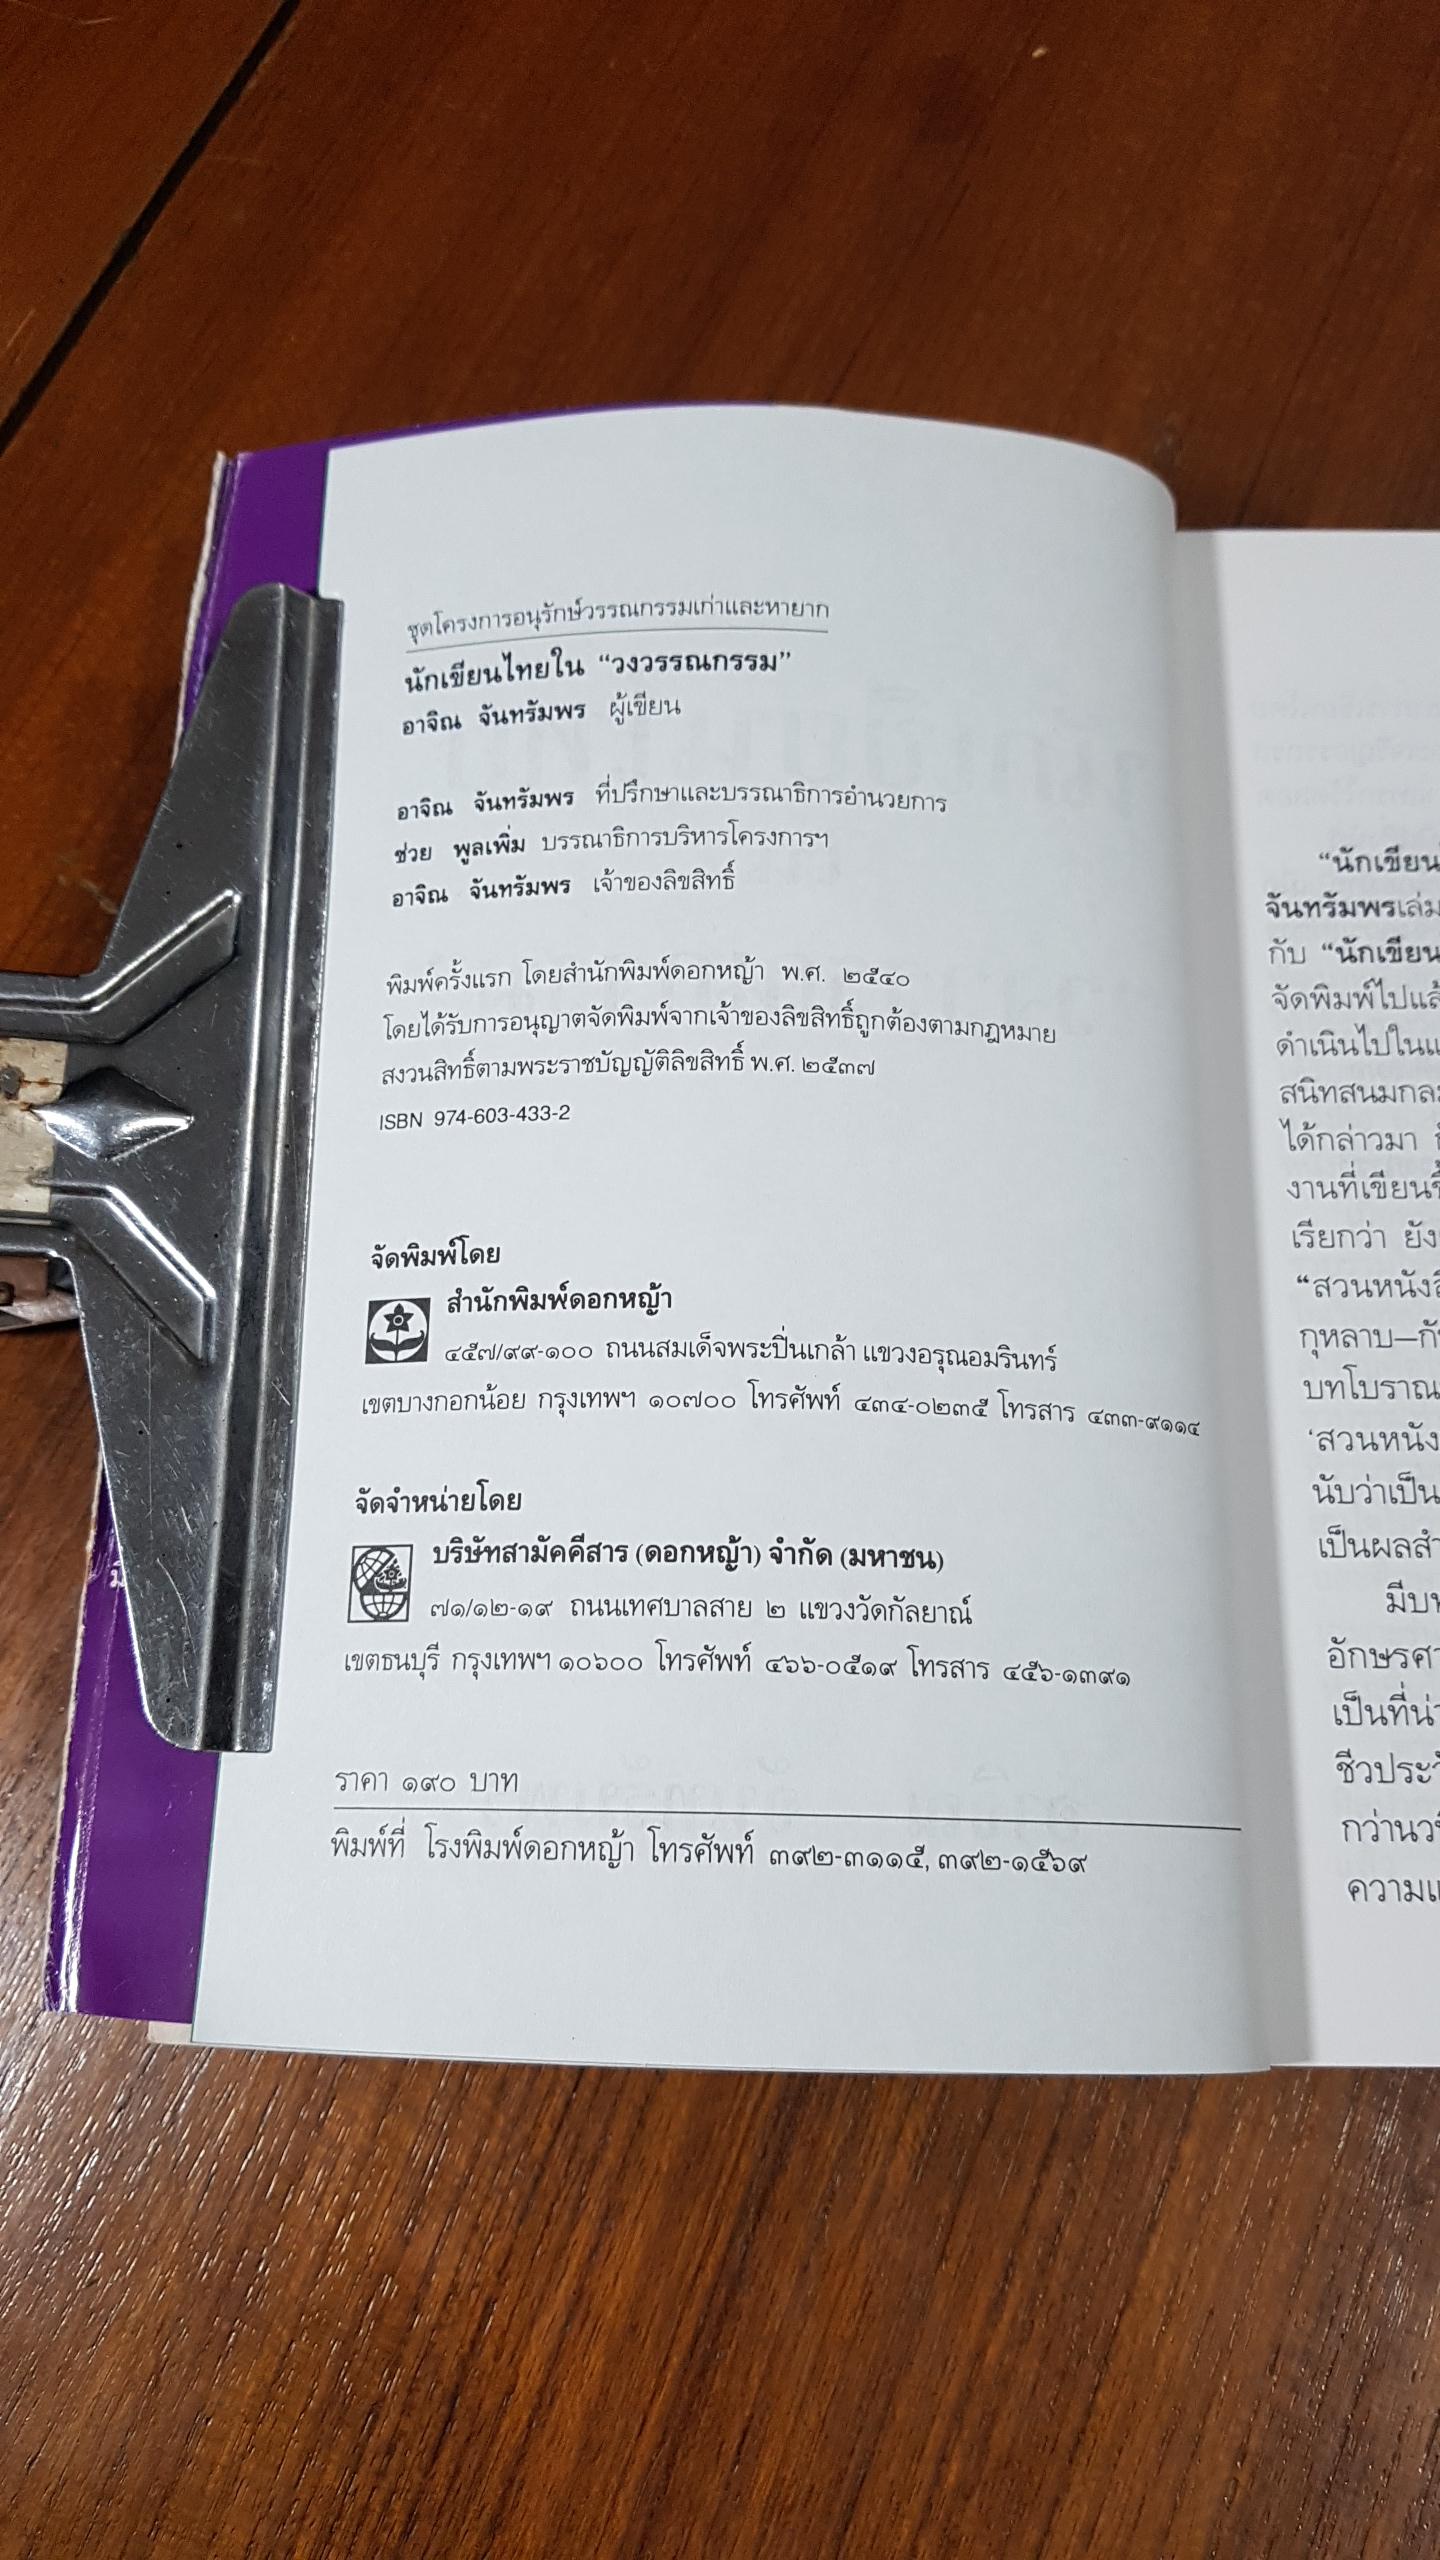 ชุดโครงการอนุรักษ์วรรณกรรมเก่าและหายาก
นักเขียนไทยใน “วงวรรณกรรม”
อาจิณ จันทรัมพร ผู้เขียน
อาจิณ จันทรัมพร ที่ปรึกษาและบรรณาธิการอำนวยการ
ช่วย พูลเพิ่ม บรรณาธิการบริหารโครงการฯ
อาจิณ จันทรัมพร เจ้าของลิขสิทธิ์
พิมพ์ครั้งแรก โดยสำนักพิมพ์ดอกหญ้า พ.ศ. ๒๕๔๐
โดยได้รับการอนุญาตจัดพิมพ์จากเจ้าของลิขสิทธิ์ถูกต้องตามกฎหมาย
สงวนสิทธิ์ตามพระราชบัญญัติลิขสิทธิ์ พ.ศ. ๒๕๓๗
ISBN 974-603-433-2
จัดพิมพ์โดย
สำนักพิมพ์ดอกหญ้า
๔๕๗/๙๙-๑๐๐ ถนนสมเด็จพระปิ่นเกล้า แขวงอรุณอมรินทร์
เขตบางกอกน้อย กรุงเทพฯ ๑๐๗๐๐ โทรศัพท์ ๔๓๔-๐๒๓๕ โทรสาร ๔๓๓-๙๑๑๔
จัดจำหน่ายโดย
บริษัทสามัคคีสาร (ดอกหญ้า) จำกัด (มหาชน)
๗๑/๑๒-๑๙ ถนนเทศบาลสาย ๒ แขวงวัดกัลยาณ์
เขตธนบุรี กรุงเทพฯ ๑๐๖๐๐ โทรศัพท์ ๔๖๖-๐๕๑๙ โทรสาร ๔๕๖-๑๓๙๑
ราคา ๑๙๐ บาท
พิมพ์ที่ โรงพิมพ์ดอกหญ้า โทรศัพท์ ๓๙๒-๓๑๑๕, ๓๙๒-๑๕๖๙
“นักเขียน
จันทรัมพรเล่ม
กับ “นักเขียน
จัดพิมพ์ไปแล้
ดำเนินไปในแ
สนิทสนมกลม
ได้กล่าวมา
งานที่เขียนขึ้
เรียกว่า ยัง
“สวนหนังสื
กุหลาบ—กั
บทโบราณ
‘สวนหนัง
นับว่าเป็น
เป็นผลสำ
มีบท
อักษรศา
เป็นที่น่า
ชีวประวั
กว่านวนิ
ความแ